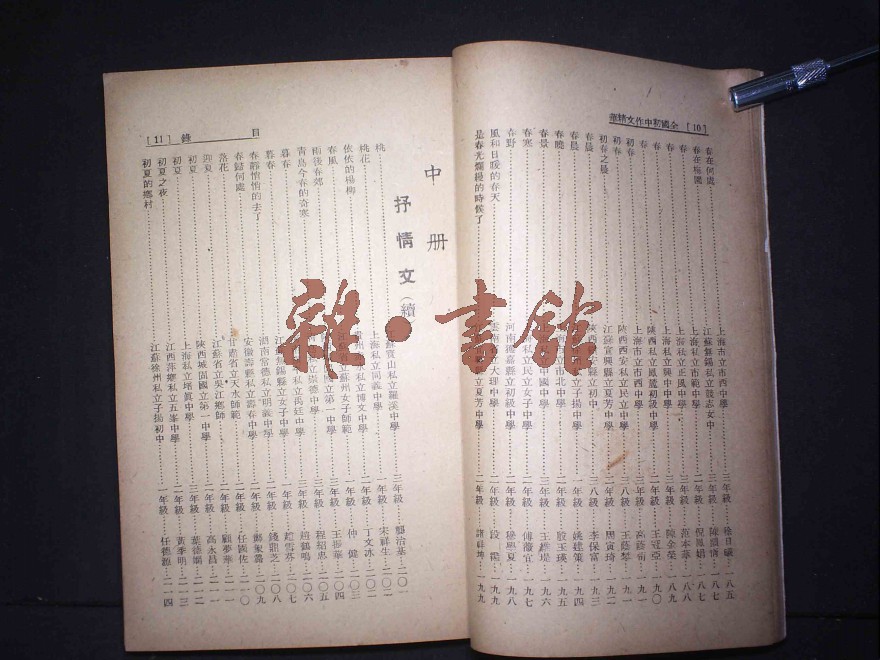 全國初中作文精華 [10]
春在何處 上海市立市西中學 三年級 一八五
春在梅園 江蘇無錫私立競志女中 一年級 一八七
春 上海私立市範中學 二年級 一八七
春 上海私立正風中學 二年級 范本華 一八八
春 上海私立興中中學 一年級 陳金榮 一八九
春 陝西私立鳳麓初級中學 二年級 王冠亞 一九〇
初春 二年級 一九一
初春 陝西西安私立民立中學 八級 王蔭琴 一九一
初春之晨 江蘇宜興縣立夏芳中學 二年級 周寅琦 一九二
春晨 陝西 縣立初中 八級 李保富 一九三
春晨 私立子揚中學 二年級 姚建策 一九四
春曉 立市北中學 二年級 殷王瑛 一九五
春景 中國中學 二年級 王維堤 一九六
春寒 私立民立女子中學 二年級 傅徽官 一九七
春野 河南獲嘉縣立初級中學 一年級 一九八
風和日暖的春天 雲南 立大理中學 二年級 段 一九九
是春光爛縵的時候了 立夏芳中學 二年級 諸祥坤 一九九
目 錄 [11]
中 册
抒情文（續）
桃 江蘇寶山私立羅漢中學 三年級 龔治基 二〇一
桃花 上海私立同義中學 一年級 宋祥生 二〇二
依依的楊柳 貴州 私立博文中學 二年級 丁文冰 二〇二
春風 江蘇省立蘇州女子師範 一年級 仲健 二〇三
雨後春郊 國立第一中學 三年級 王振華 二〇四
青島今春的奇寒 私立崇德中學 三年級 程紹忠 二〇五
暮春 私立禹廷中學 三年級 趙鶴鳴 二〇六
暮春 江蘇無錫縣立女子中學 一年級 趙雪芬 二〇七
春靜悄悄的去了 湖南常德私立明義中學 二年級 錢鼎芝 二〇八
春歸何處 安徽壽縣私立壽春中學 二年級 鄭家騫 二〇九
落花 甘肅省立天水師範 一年級 任騏佐 二一〇
迎夏 江蘇省立吳江鄉師 一年級 顧夢華 二一一
初夏 陝西城固國立第一中學 一年級 高永昌 二一一
初夏 上海私立培真中學 三年級 葉德娟 二一二
初夏之夜 江西萍鄉私立五峯中學 二年級 黃季明 二一三
初夏的鄉村 江蘇徐州私立子揚初中 一年級 任德源 二一四
雜·書館